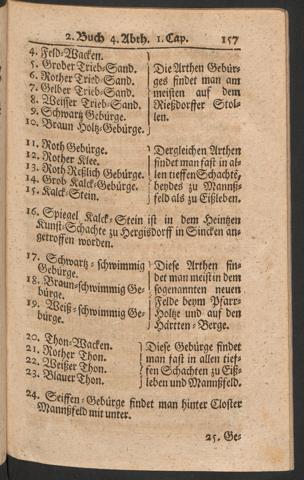 2. Buch 4. Abth. 1. Cap. 157
4. Feld-Wacken.
5. Grober Trieb-Sand.
6. Rother Trieb-Sand.
7. Gelber Trieb-Sand.
8. Weisser Trieb-Sand.
9. Schwartz Gebürge.
10. Braun Holtz-Gebürge.
Die Arthen Gebür-
ges findet man am
meisten auf dem
Rießdorffer Stol-
len.
11. Roth Gebürge.
12. Rother Klee.
13. Roth Reßlich Gebürge.
14. Grob Kalck-Gebürge.
15. Kalck-Stein.
Dergleichen Arthen
findet man fast in al-
len tieffen Schachte,
beydes zu Mannß-
feld als zu Eißleben.
16. Spiegel Kalck-Stein ist in dem Heintzen
Kunst-Schachte zu Hergisdorff in Sincken an-
getroffen worden.
17. Schwartz-schwimmig
Gebürge.
18. Braun-schwimmig Ge-
bürge.
19. Weiß-schwimmig Ge-
bürge.
Diese Arthen fin-
det man meist in dem
sogenannten neuen
Felde beym Pfarr-
Holtze und auf den
Härtten-Berge.
20. Thon-Wacken.
21. Rother Thon.
22. Weißer Thon.
23. Blauer Thon.
Diese Gebürge findet
man fast in allen tief-
fen Schachten zu Eiß-
leben und Mannßfeld.
24. Seiffen-Gebürge findet man hinter Closter
Mannßfeld mit unter.
25. Ge-